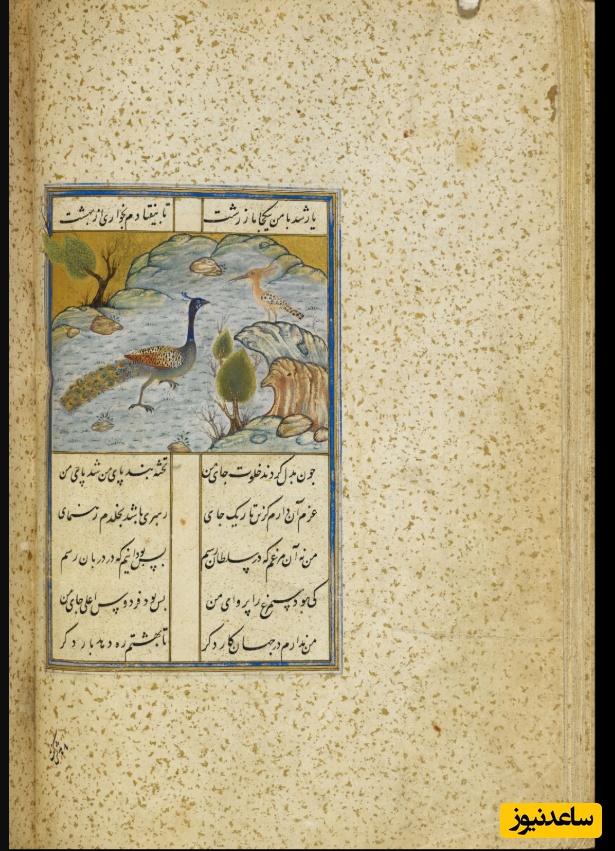 یار شد با من بیکجا مار زشت تا بیفتادم بخواری از بهشت
چون بدل کردند خلوت جای من تخته بند پای من شد پای من
عزم آن دارم کزین تاریک جای رهبری باشد بخلدم رهنمای
من نه آن مرغم که در سلطان رسم بس بود اینم که در دربان رسم
کی بود سیمرغ را پروای من بس بود فردوس اعلی جای من
من ندارم در جهان کار دگر تا بهشتم ره دهد بار دگر
ساعدنیوز